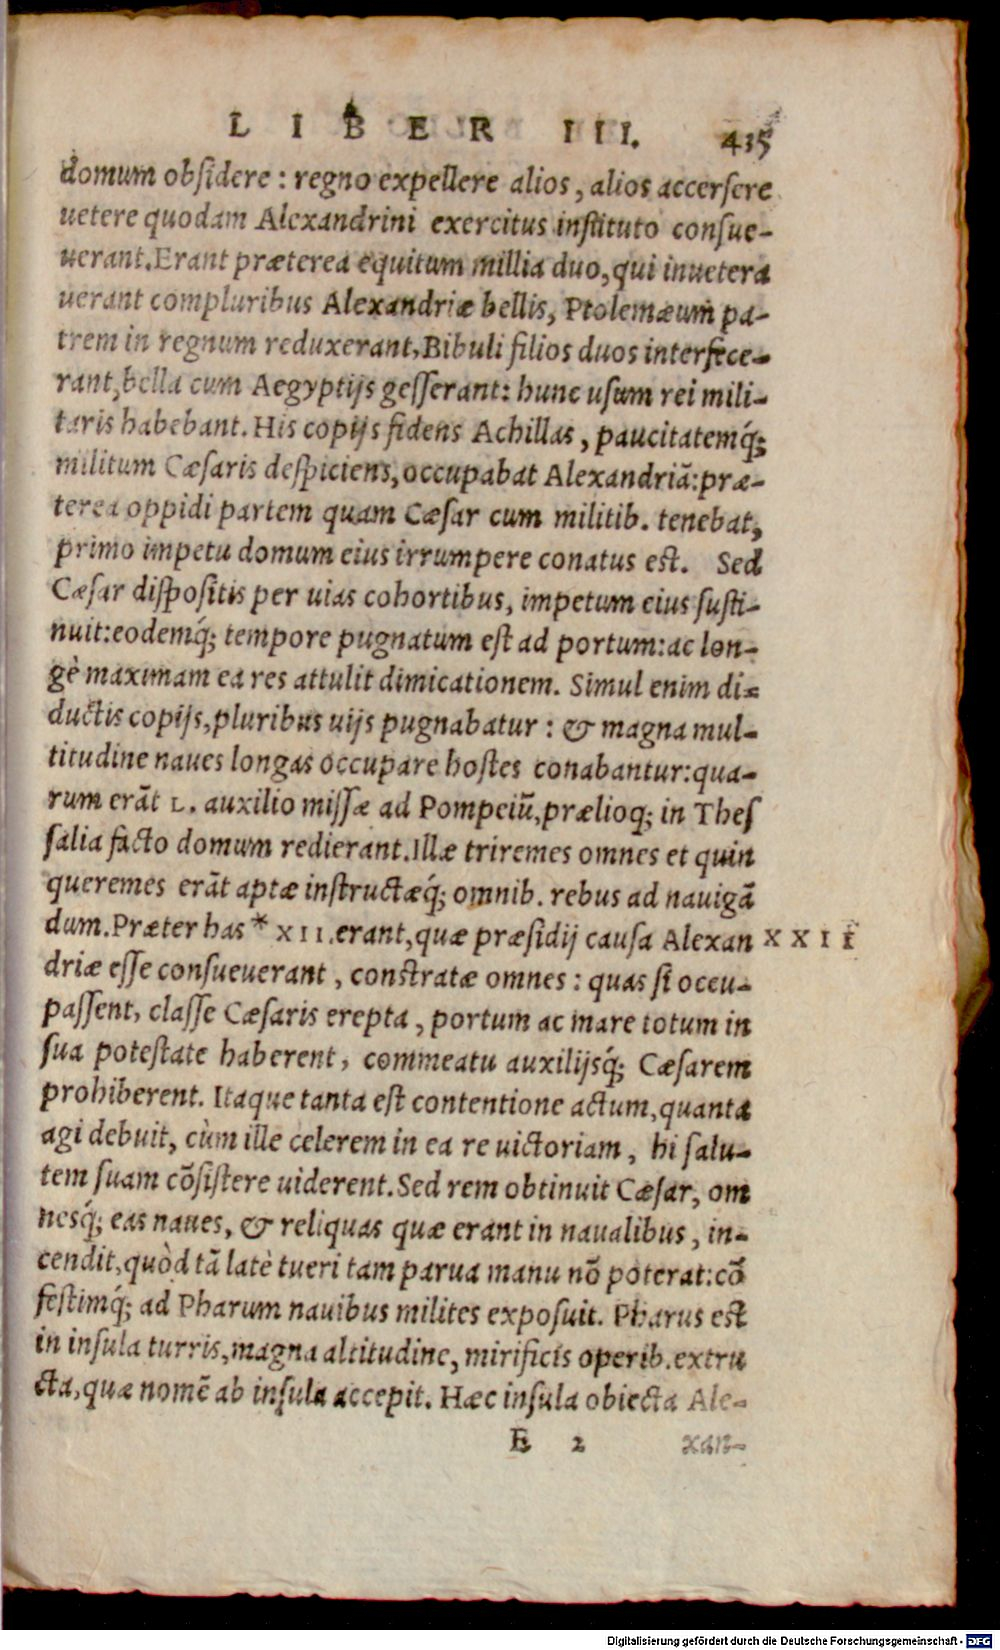 LIBER III. 435
domum obsidere: regno expellere alios, alios accersere
uetere quodam Alexandrini exercitus instituto consue-
uerant. Erant præterea equitum millia duo, qui inuetera
uerant compluribus Alexandriæ bellis, Ptolemæum pa-
trem in regnum reduxerant, Bibuli filios duos interfece-
rant, bella cum Aegyptijs gesserant: hunc usum rei mili-
taris habebant. His copijs fidens Achillas, paucitatemq́;
militum Cæsaris despiciens, occupabat Alexandriã: præ-
terea oppidi partem quam Cæsar cum militib. tenebat,
primo impetu domum eius irrumpere conatus est. Sed
Cæsar dispositis per uias cohortibus, impetum eius susti-
nuit: eodemq́; tempore pugnatum est ad portum: ac lon-
gè maximam ea res attulit dimicationem. Simul enim di-
ductis copijs, pluribus uijs pugnabatur: & magna mul-
titudine naues longas occupare hostes conabantur: qua-
rum erãt L. auxilio missæ ad Pompeiũ, prælioq; in Thes
salia facto domum redierant. Illæ triremes omnes et quin
queremes erãt aptæ instructæq́; omnib. rebus ad nauigã
dum. Præter has * XII. erant, quæ præsidij causa Alexan XXII
driæ esse consueuerant, constratæ omnes: quas si occu-
passent, classe Cæsaris erepta, portum ac mare totum in
sua potestate haberent, commeatu auxilijsq́; Cæsarem
prohiberent. Itaque tanta est contentione actum, quanta
agi debuit, cùm ille celerem in ea re uictoriam, hi salu-
tem suam cõsistere uiderent. Sed rem obtinuit Cæsar, om
nesq́; eas naues, & reliquas quæ erant in naualibus, in-
cendit, quòd tã latè tueri tam parua manu nõ poterat: cõ
festimq́; ad Pharum nauibus milites exposuit. Pharus est
in insula turris, magna altitudine, mirificis operib. extru
cta, quæ nomẽ ab insula accepit. Hæc insula obiecta Ale-
E 2 xan-
Digitalisierung gefördert durch die Deutsche Forschungsgemeinschaft - DFG